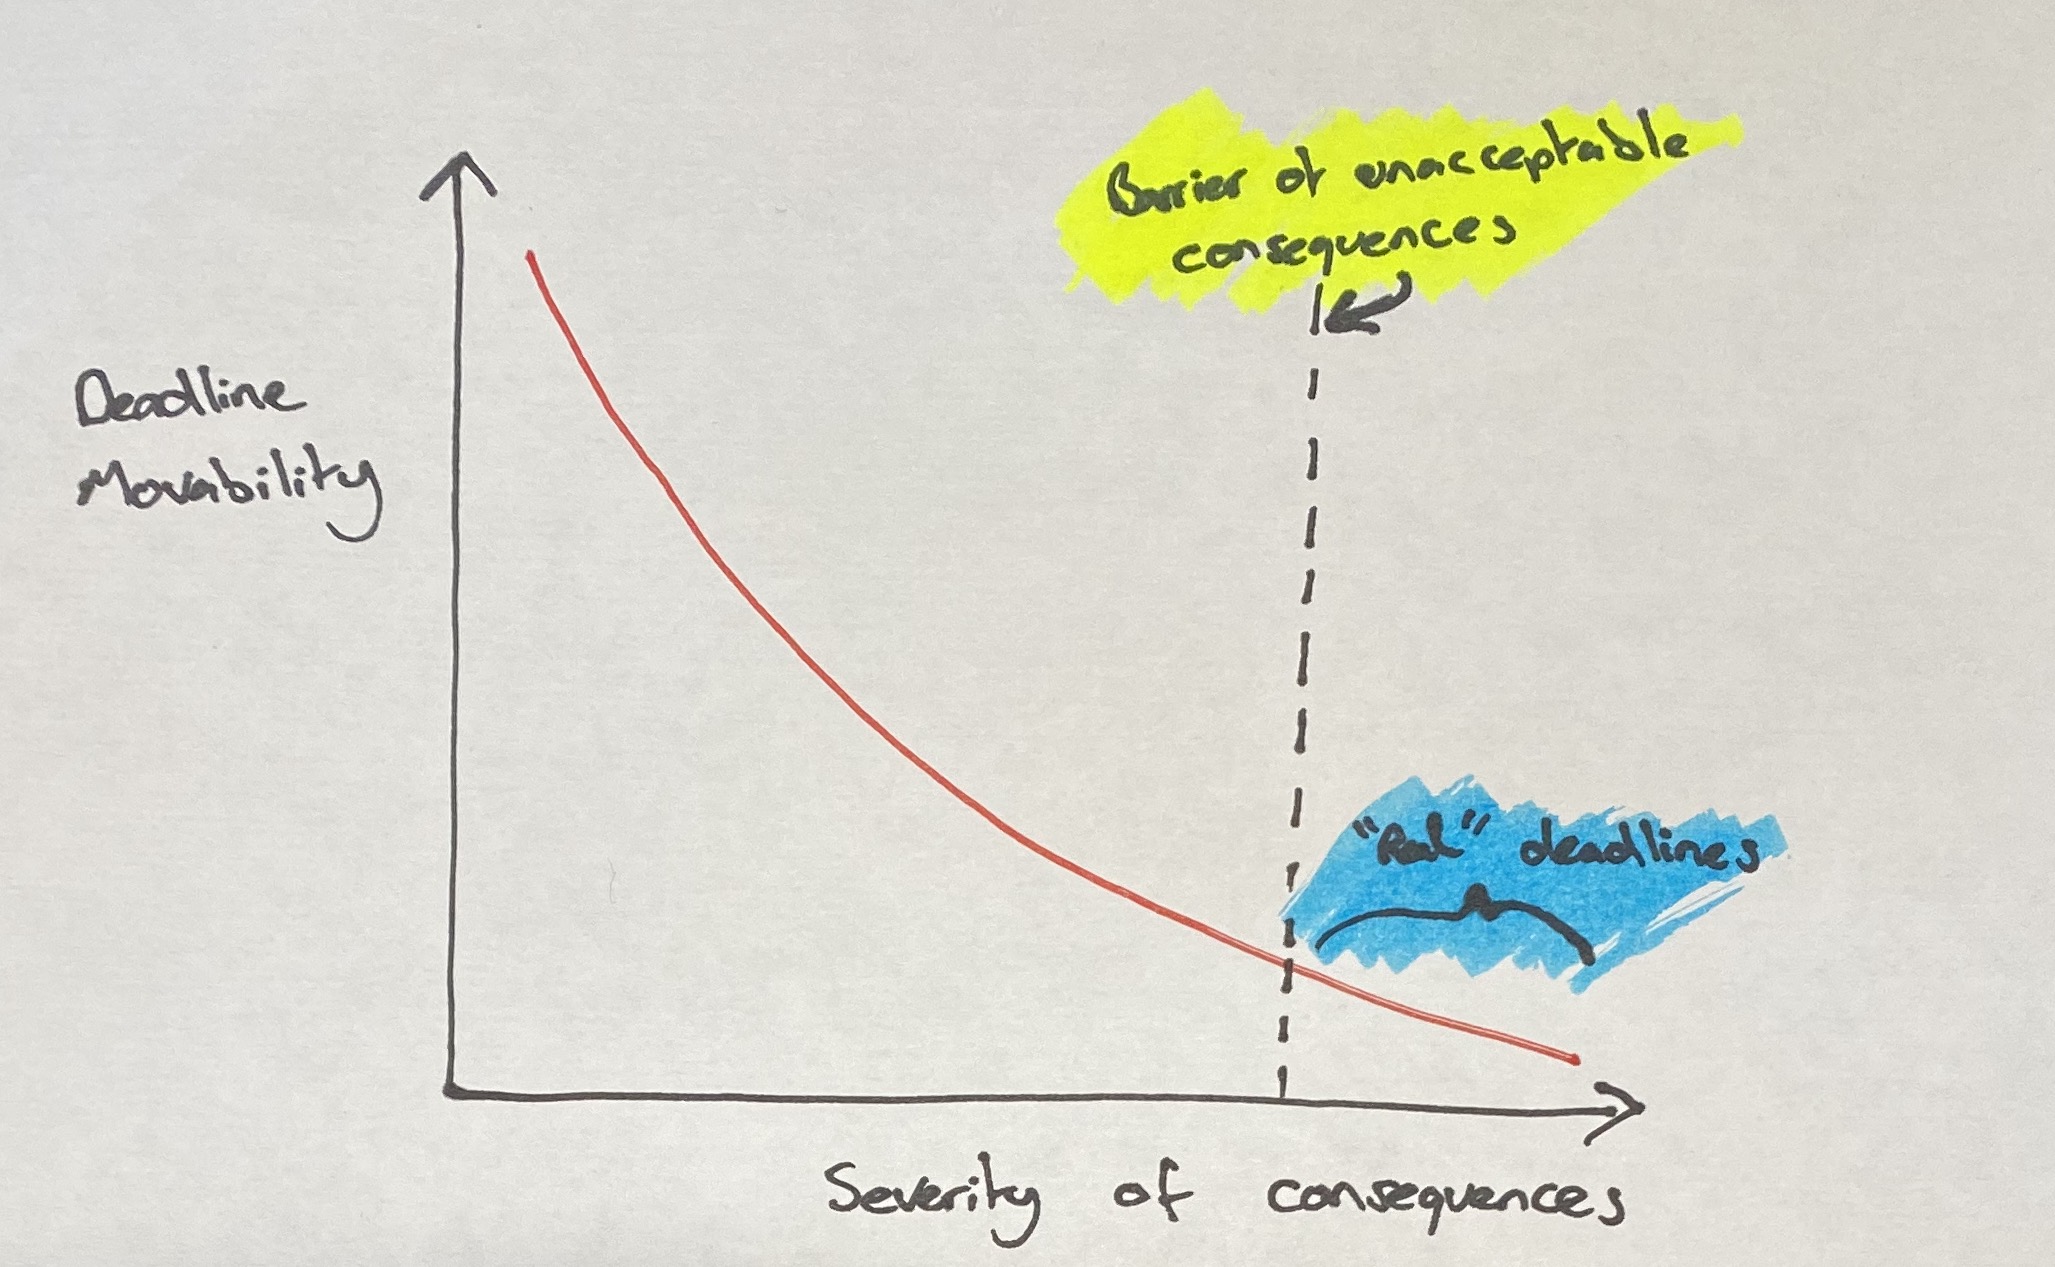 Barrier of unacceptable
consequences
Deadline
Movability
"Real" deadlines
Severity of consequences